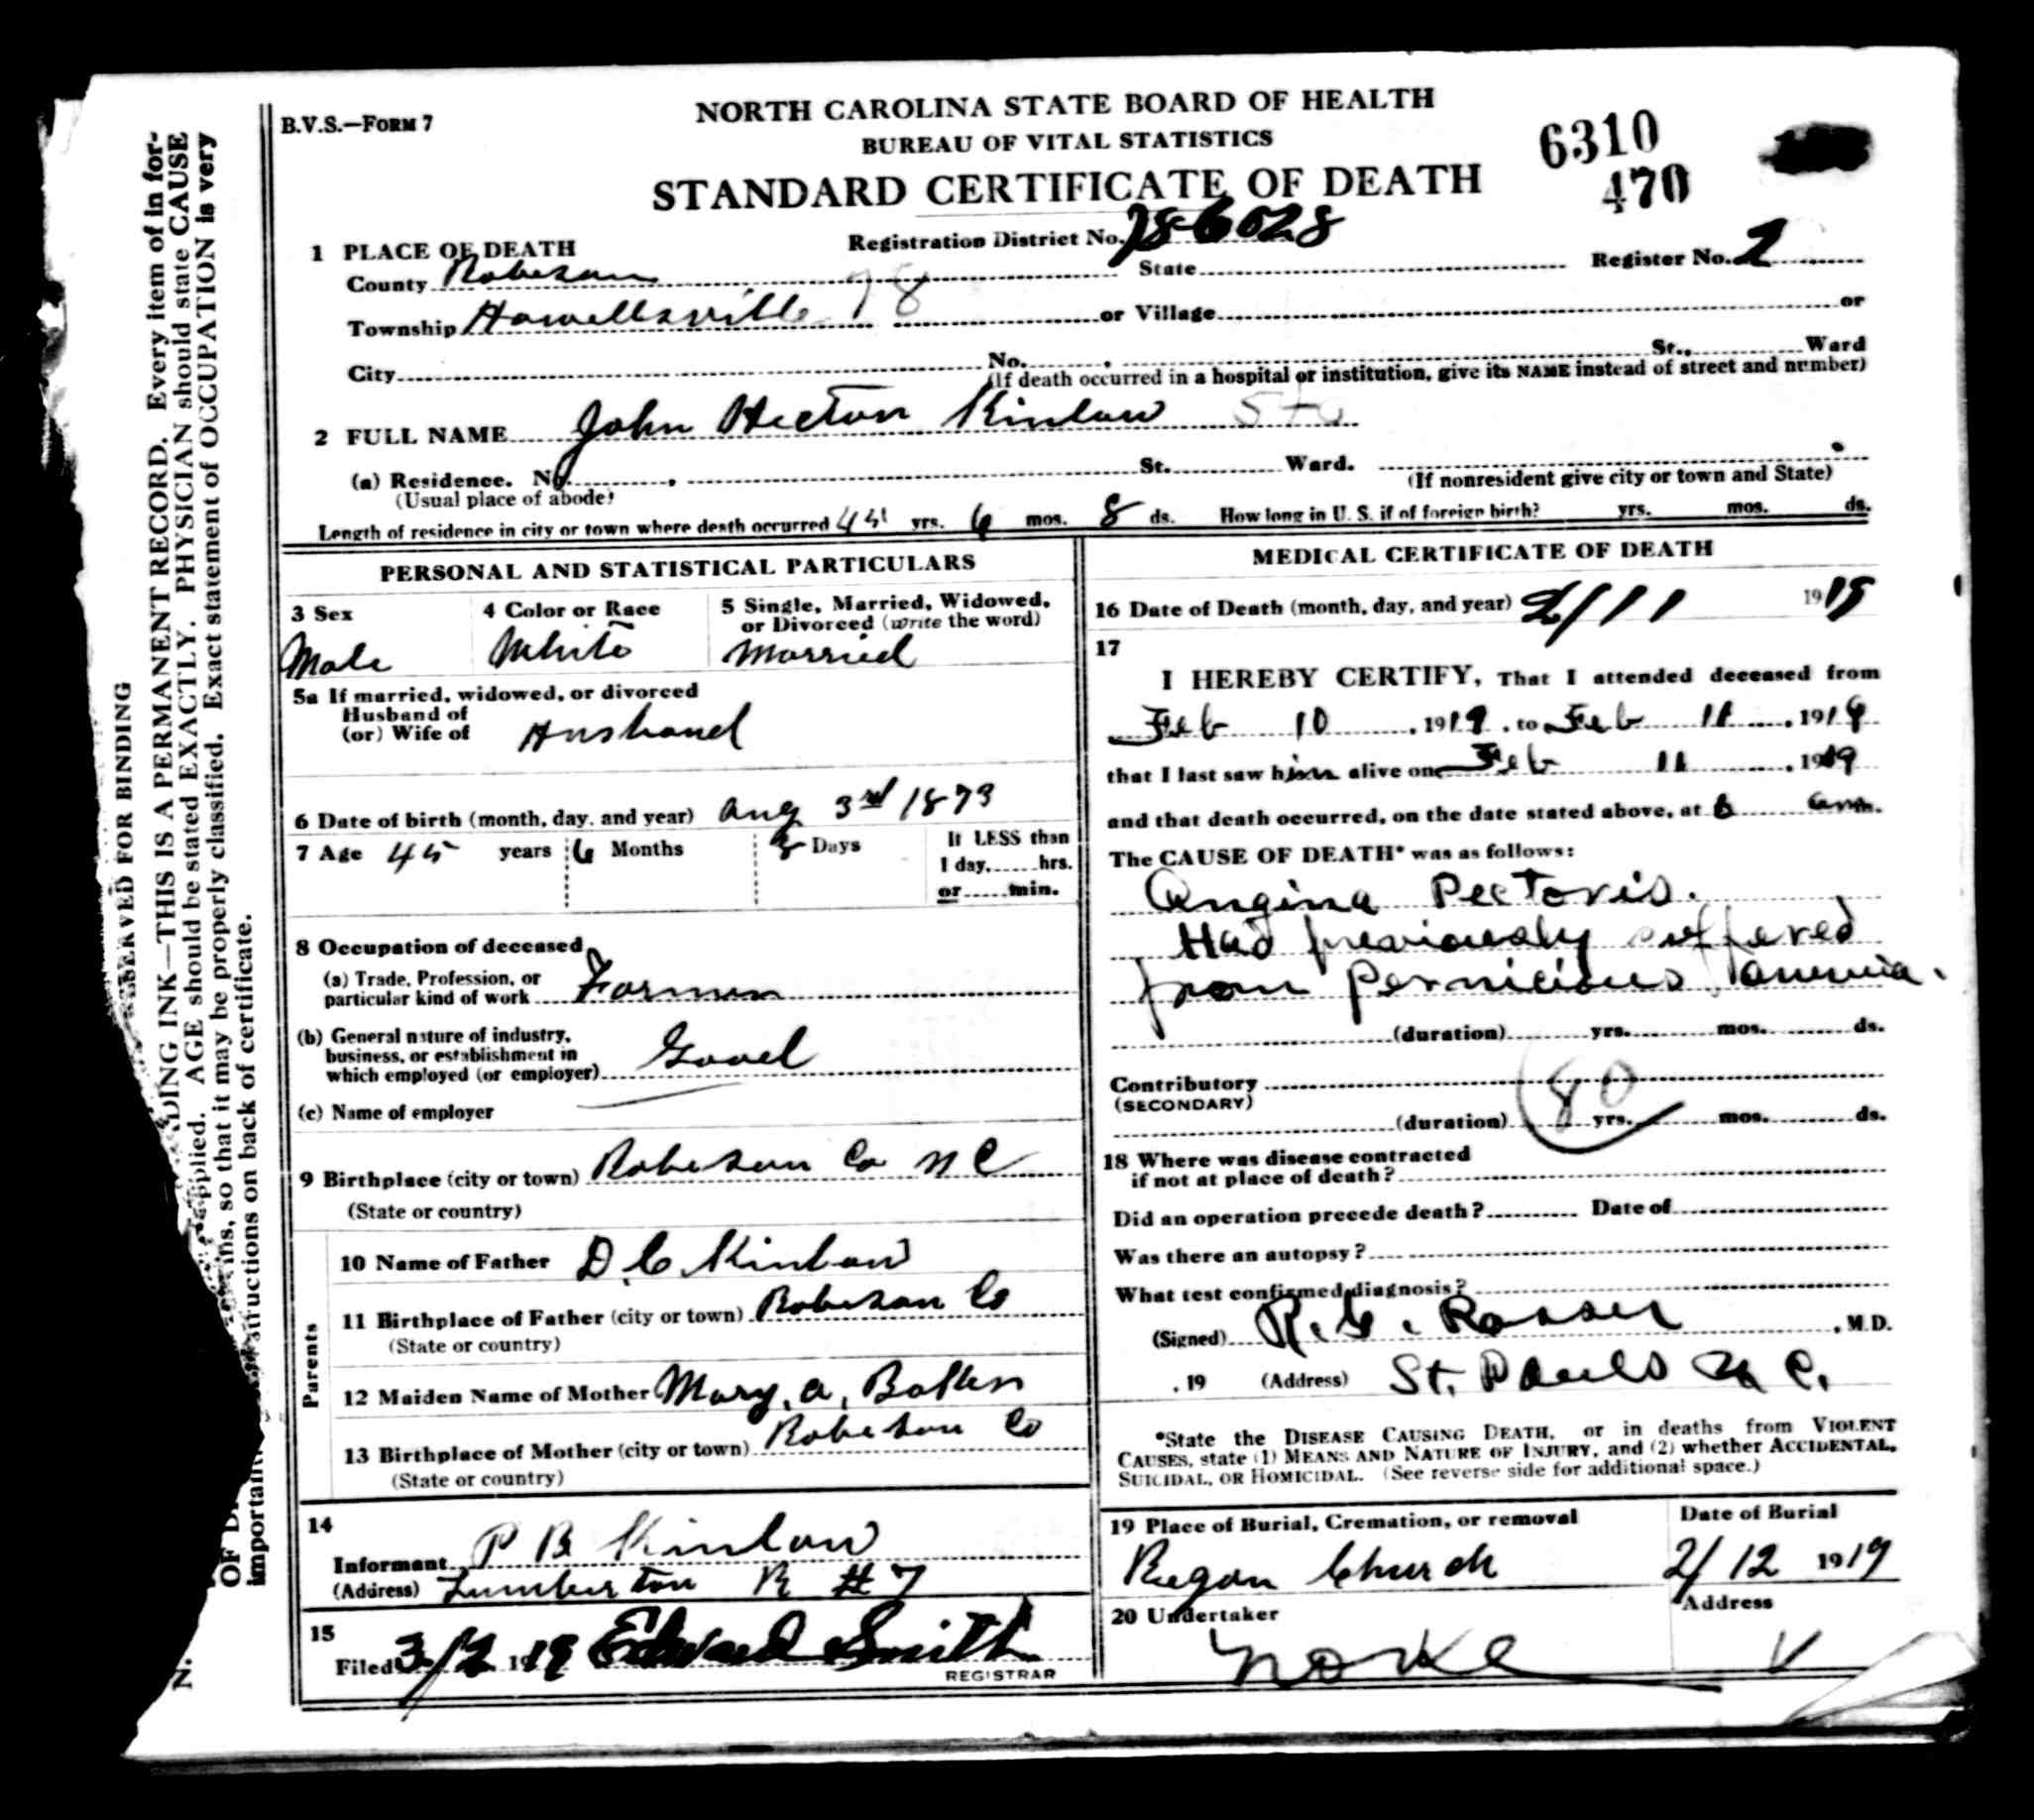 B.V.S.—FORM 7
NORTH CAROLINA STATE BOARD OF HEALTH
BUREAU OF VITAL STATISTICS
STANDARD CERTIFICATE OF DEATH
6310
470
1 PLACE OF DEATH
Registration District No. 78-6028
Register No. 2
County Robeson State
Township Howellsville 78 or Village or
City No. , St., Ward
(If death occurred in a hospital or institution, give its NAME instead of street and number)
2 FULL NAME John Hector Kinlaw
(a) Residence. No. , St. Ward.
(Usual place of abode) (If nonresident give city or town and State)
Length of residence in city or town where death occurred 45 yrs. 6 mos. 8 ds. How long in U. S. if of foreign birth? yrs. mos. ds.
PERSONAL AND STATISTICAL PARTICULARS
3 Sex
Male
4 Color or Race
White
5 Single, Married, Widowed,
or Divorced (write the word)
Married
5a If married, widowed, or divorced
Husband of
(or) Wife of Husband
6 Date of birth (month, day, and year) Aug 3rd 1873
7 Age 45 years 6 Months 8 Days
If LESS than
1 day, hrs.
or min.
8 Occupation of deceased
(a) Trade, Profession, or
particular kind of work Farmer
(b) General nature of industry,
business, or establishment in
which employed (or employer)
(c) Name of employer
9 Birthplace (city or town) Robeson Co N C
(State or country)
Parents
10 Name of Father D. C. Kinlaw
11 Birthplace of Father (city or town) Robeson Co
(State or country)
12 Maiden Name of Mother Mary. A.
13 Birthplace of Mother (city or town) Robeson Co
(State or country)
14
Informant P B Kinlaw
(Address) Lumberton R #7
15
Filed 3/2 1919 Edward Smith
REGISTRAR
MEDICAL CERTIFICATE OF DEATH
16 Date of Death (month, day, and year) 2/11 1919
17
I HEREBY CERTIFY, That I attended deceased from
Feb 10, 1919, to Feb 11, 1919
that I last saw him alive on Feb 11, 1919
and that death occurred, on the date stated above, at 6 am.
The CAUSE OF DEATH* was as follows:
Angina Pectoris.
Had previously suffered
from Pernicious anemia.
(duration) yrs. mos. ds.
Contributory
(SECONDARY)
80
(duration) yrs. mos. ds.
18 Where was disease contracted
if not at place of death?
Did an operation precede death? Date of
Was there an autopsy?
What test confirmed diagnosis?
(Signed) R. G. Rosser, M.D.
, 19 (Address) St. Pauls N C.
*State the DISEASE CAUSING DEATH, or in deaths from VIOLENT
CAUSES, state (1) MEANS AND NATURE OF INJURY, and (2) whether ACCIDENTAL,
SUICIDAL, OR HOMICIDAL. (See reverse side for additional space.)
19 Place of Burial, Cremation, or removal
Regan Church
Date of Burial
2/12 1919
20 Undertaker
none
Address
SERVED FOR BINDING
DING INK—THIS IS A PERMANENT RECORD. Every item of infor-
applied. AGE should be stated EXACTLY. PHYSICIAN should state CAUSE
so that it may be properly classified. Exact statement of OCCUPATION is very
important. on back of certificate.